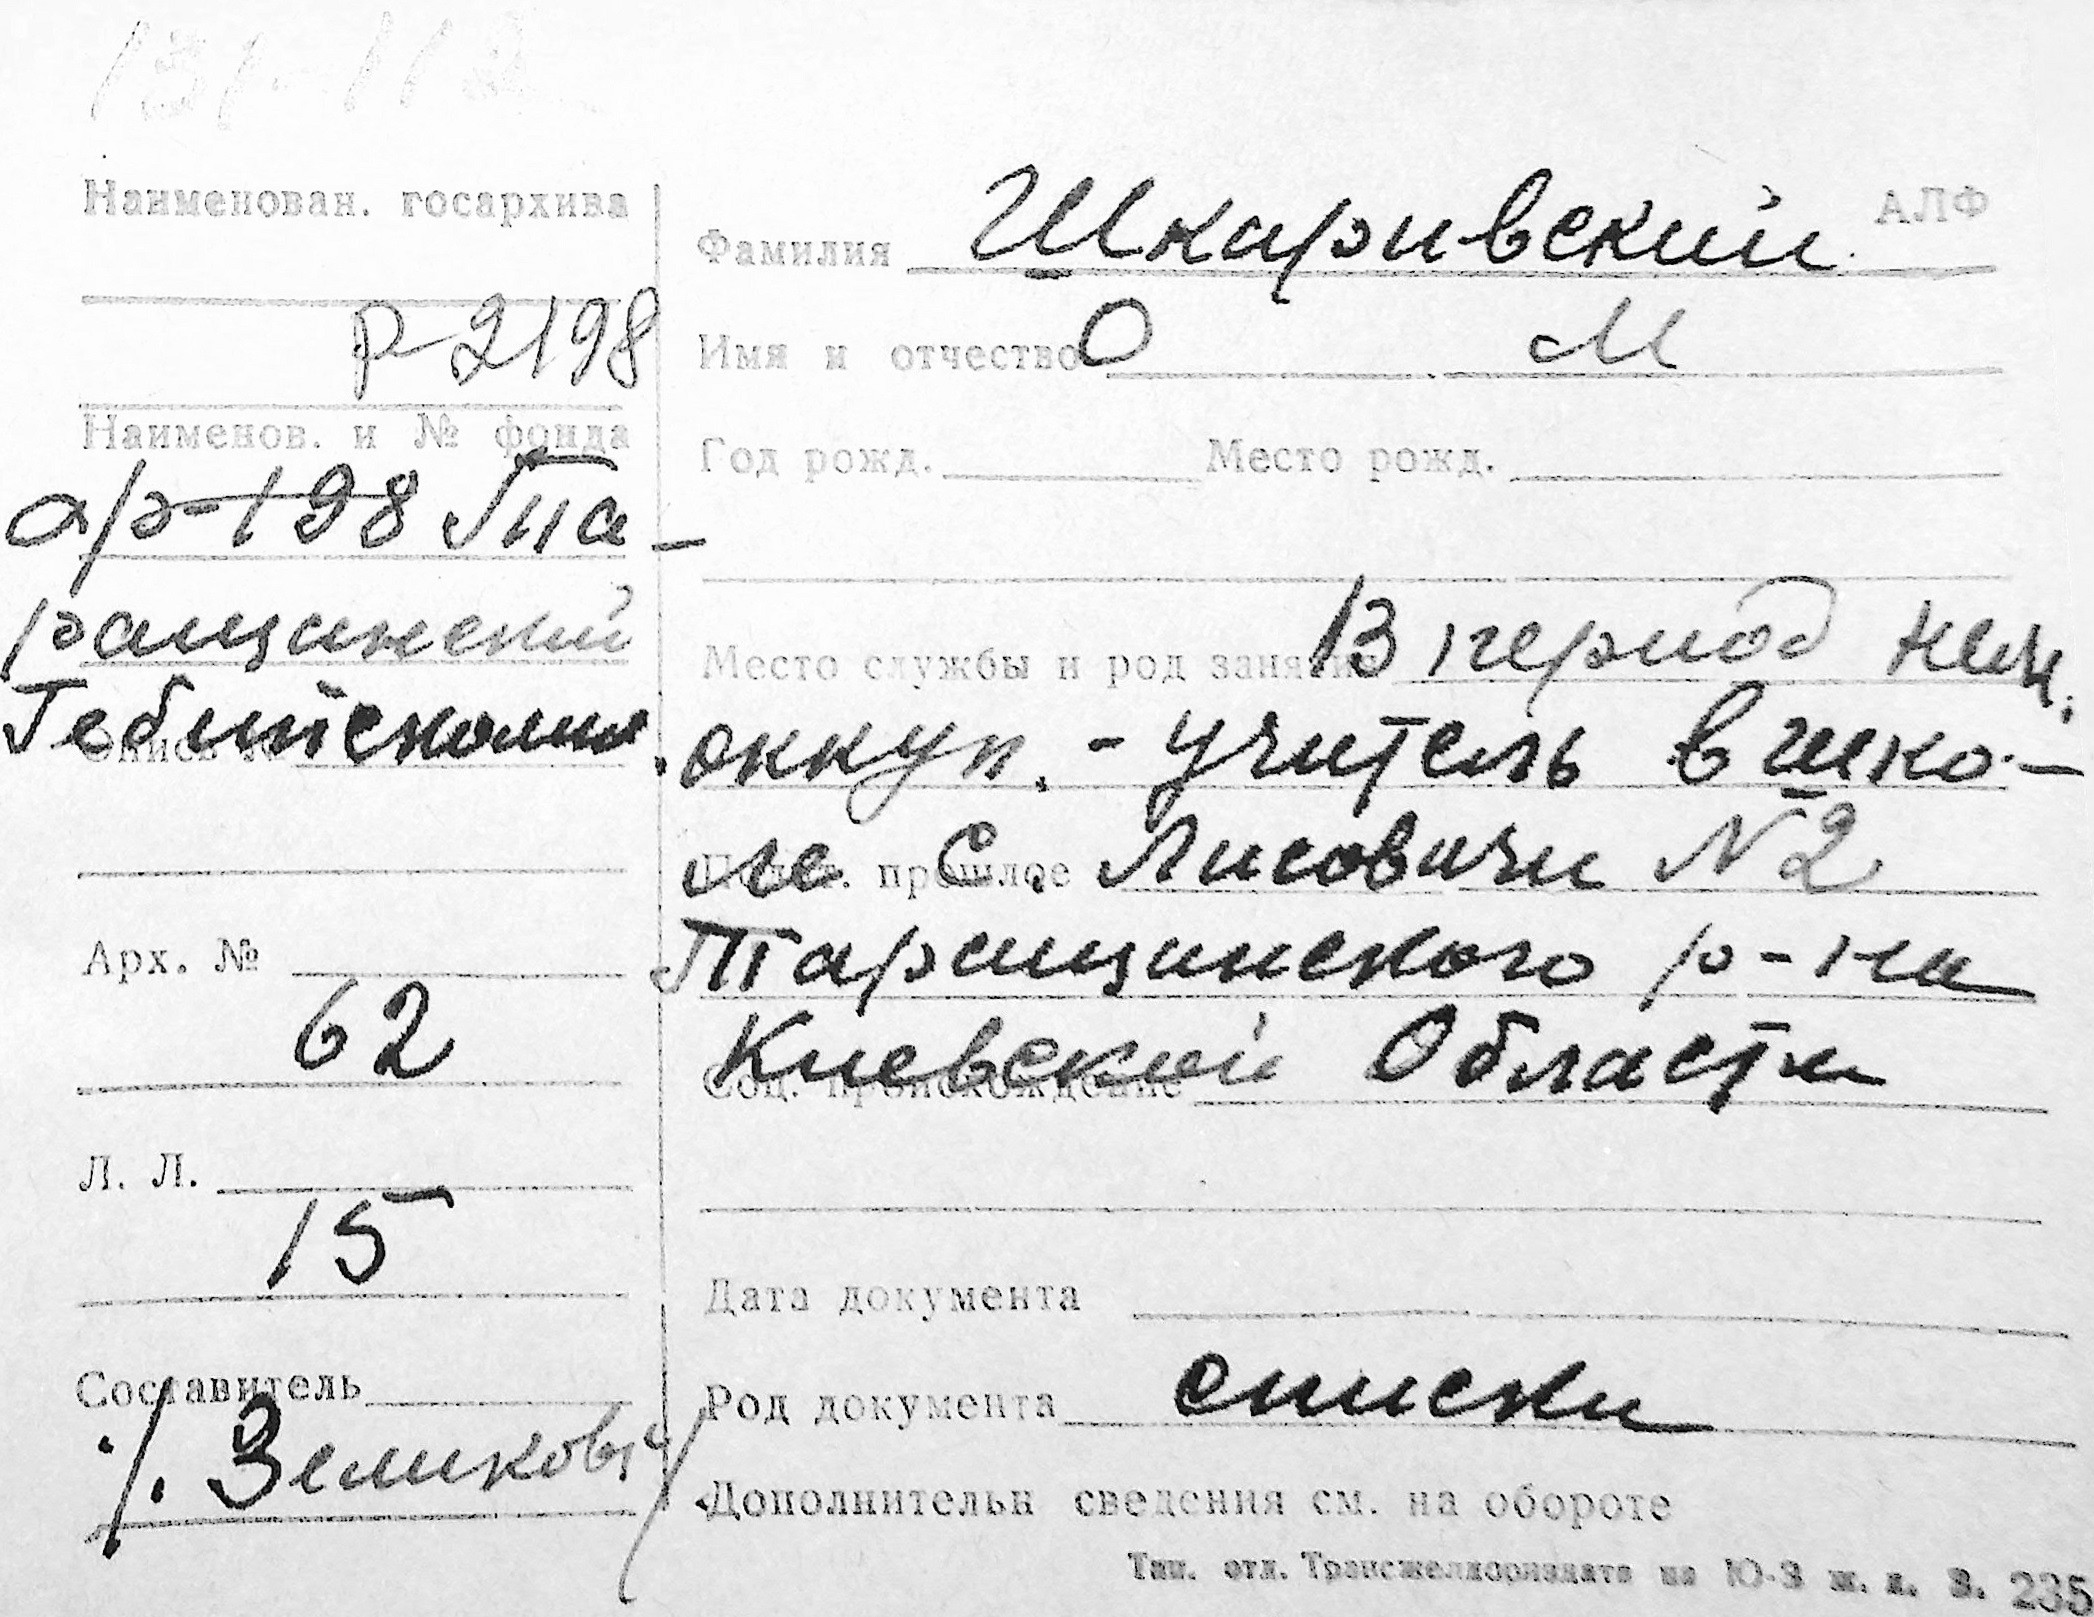 131-112
Наименован. госархива
Р 2198
Наименов. и № фонда
фр-198 Та-
ращинский
Гебитскомис.
Опись №
Арх. №
62
Л. Л.
15
Составитель
/. Земликович/
АЛФ
Фамилия Шкаривский
Имя и отчество О М
Год рожд. Место рожд.
Место службы и род занятия В период нем.
оккуп. - учитель в шко-
Полит. прошлое ле с. Лисовичи № 2
Таращинского р-на
Соц. происхождение Киевской Области
Дата документа
Род документа списки
Дополнительн сведения см. на обороте
Тип. отд. Трансжелдориздата на Ю-З ж. д. З. 235